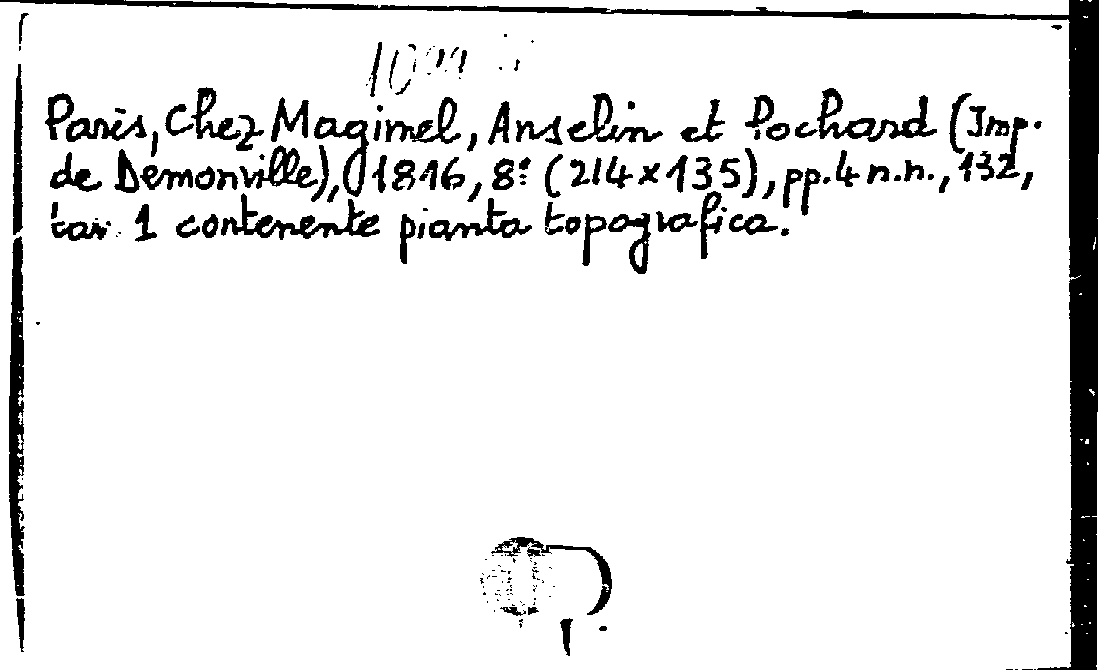 Paris, Chez Magimel, Anselin et Pochard (Imp.
de Demonville), 1816, 8º (214 x 135), pp. 4 n.n., 132,
tav. 1 contenente pianta topografica.